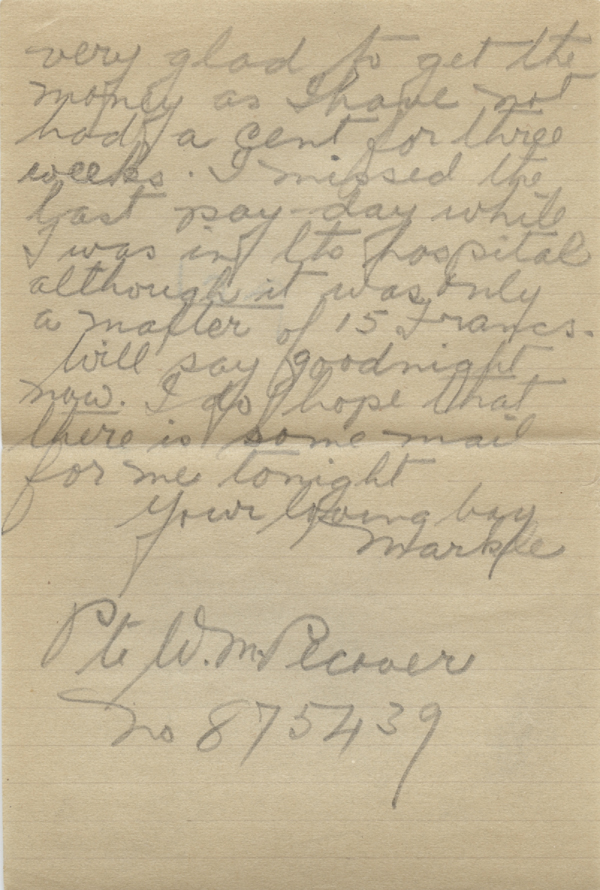 very glad to get the
money as I have not
had a cent for three
weeks. I missed the
last pay-day while
I was in the hospital
although it was only
a matter of 15 Francs.
Will say goodnight
now. I do hope that
there is some mail
for me tonight
Your loving boy
Markle
Pte W. M. Pecover
No 875439